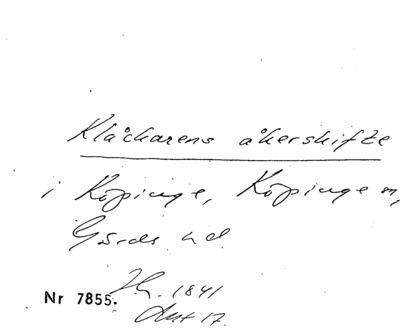 Klåckarens åkerskifte
i Köpinge, Köpinge sn,
Gärds hd
Nr 7855. Jfr. 1841
Aut 17.